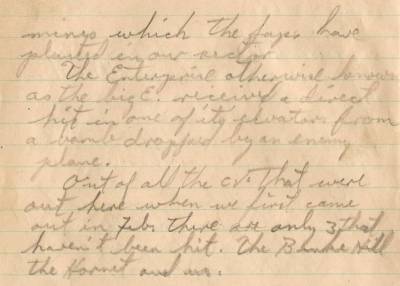 mines which the Japs have
planted in our sector
The Enterprise otherwise known
as the big E. received a direct
hit in one of its elevators from
a bomb dropped by an enemy
plane.
Out of all the cv's that were
out here when we first came
out in Feb. there are only 3 that
haven't been hit. The Bunke Hill
the Hornet and us.